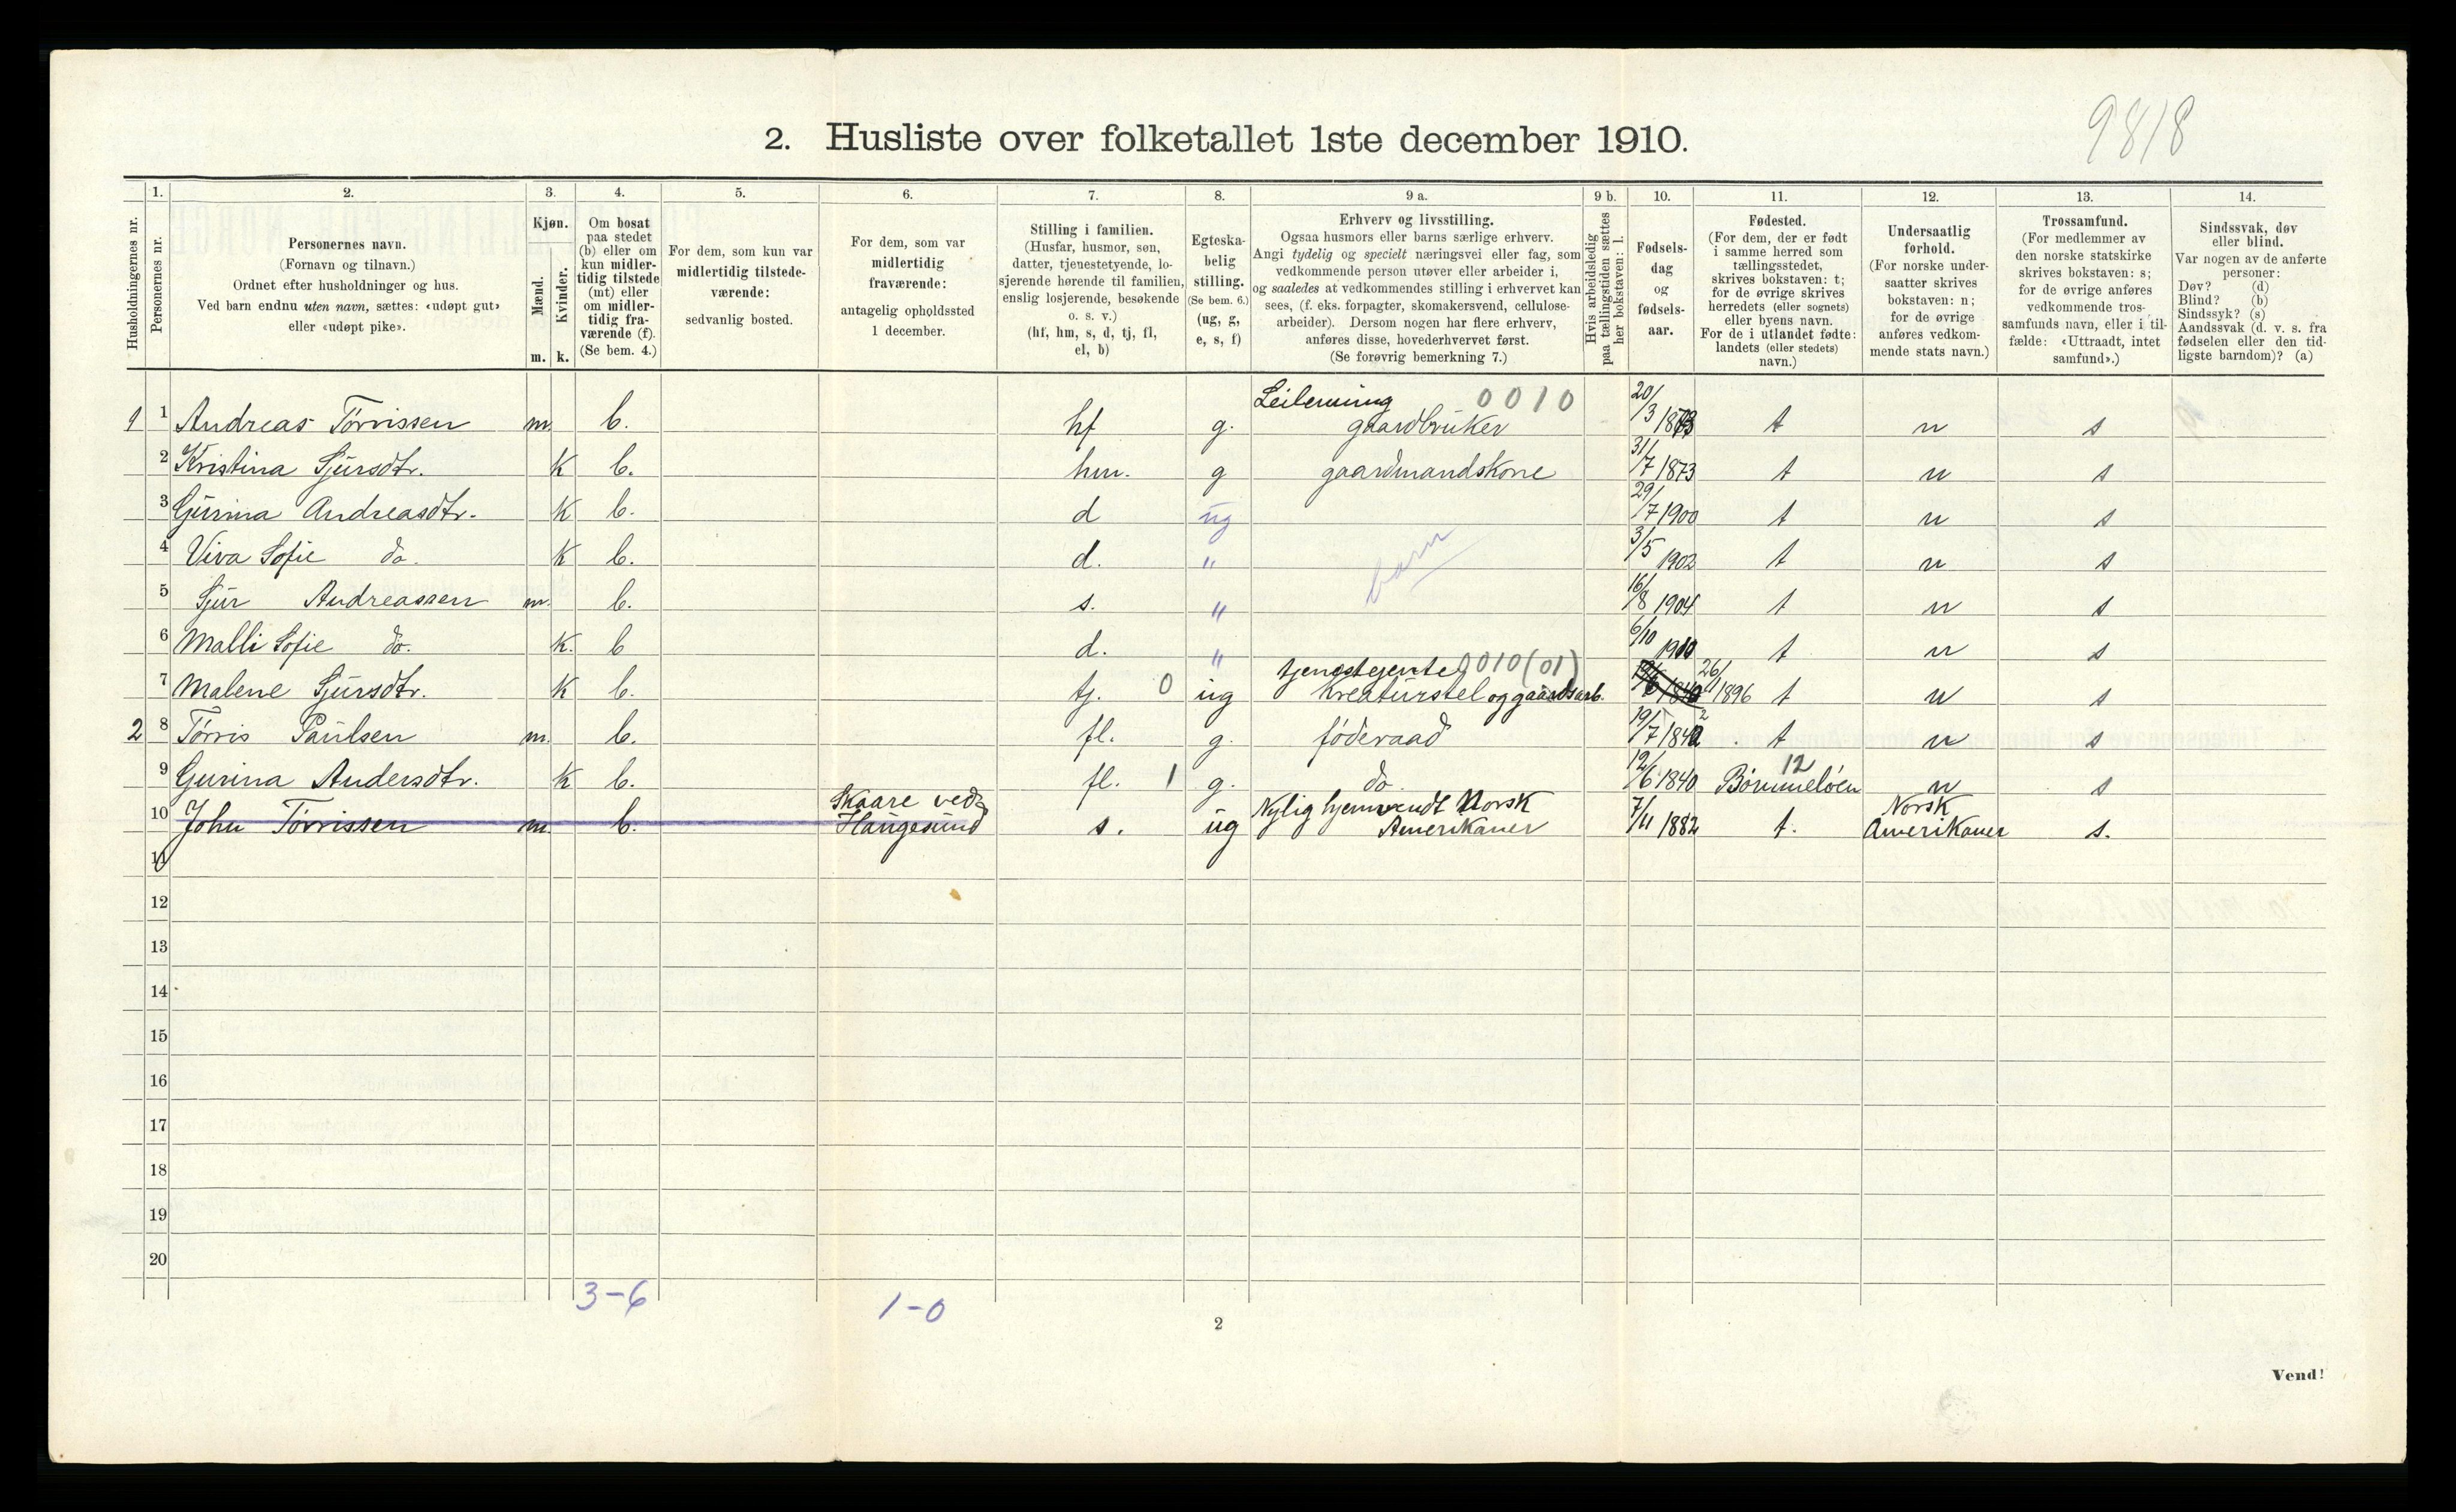 9818
2. Husliste over folketallet 1ste december 1910.
Husholdningernes nr.
1.
Personernes nr.
2.
Personernes navn.
(Fornavn og tilnavn.)
Ordnet efter husholdninger og hus.
Ved barn endnu uten navn, sættes: «udøpt gut»
eller «udøpt pike».
3.
Kjøn.
Mænd.
Kvinder.
m. k.
4.
Om bosat
paa stedet
(b) eller om
kun midler-
tidig tilstede
(mt) eller
om midler-
tidig fra-
værende (f).
(Se bem. 4.)
5.
For dem, som kun var
midlertidig tilstede-
værende:
sedvanlig bosted.
6.
For dem, som var
midlertidig
fraværende:
antagelig opholdssted
1 december.
7.
Stilling i familien.
(Husfar, husmor, søn,
datter, tjenestetyende, lo-
sjerende hørende til familien,
enslig losjerende, besøkende
o. s. v.)
(hf, hm, s, d, tj, fl,
el, b)
8.
Egteska-
belig
stilling.
(Se bem. 6.)
(ug, g,
e, s, f)
9 a.
Erhverv og livsstilling.
Ogsaa husmors eller barns særlige erhverv.
Angi tydelig og specielt næringsvei eller fag, som
vedkommende person utøver eller arbeider i,
og saaledes at vedkommendes stilling i erhvervet kan
sees, (f. eks. forpagter, skomakersvend, cellulose-
arbeider). Dersom nogen har flere erhverv,
anføres disse, hovederhvervet først.
(Se forøvrig bemerkning 7.)
9 b.
Hvis arbeidsledig
paa tællingstiden sættes
her bokstaven: l.
10.
Fødsels-
dag
og
fødsels-
aar.
11.
Fødested.
(For dem, der er født
i samme herred som
tællingsstedet,
skrives bokstaven: t;
for de øvrige skrives
herredets (eller sognets)
eller byens navn.
For de i utlandet fødte:
landets (eller stedets)
navn.)
12.
Undersaatlig
forhold.
(For norske under-
saatter skrives
bokstaven: n;
for de øvrige
anføres vedkom-
mende stats navn.)
13.
Trossamfund.
(For medlemmer av
den norske statskirke
skrives bokstaven: s;
for de øvrige anføres
vedkommende tros-
samfunds navn, eller i til-
fælde: «Uttraadt, intet
samfund».)
14.
Sindssvak, døv
eller blind.
Var nogen av de anførte
personer:
Døv? (d)
Blind? (b)
Sindssyk? (s)
Aandssvak (d. v. s. fra
fødselen eller den tid-
ligste barndom)? (a)
Leilenning 0010
1 1 Andreas Tørrissen m. b. hf g. gaardbruker 20/3 1873 t n s
2 Kristina Sjursdtr. k b. hm. g gaardmandskone 31/7 1873 t n s
3 Gurina Andreasdtr. k b. d ug 29/7 1900 t n s
4 Viva Sofie do. k b. d. " barn 3/5 1902 t n s
5 Sjur Andreassen m. b. s. " 16/8 1904 t n s
6 Malli Sofie do. k. b d. " 6/10 1910 t n s
tjenestejente 0010(01)
7 Malene Sjursdtr. k b. tj. 0 ug Kreaturstel og gaardsarb. 26/11 1896 t n s
2 8 Tørris Paulsen m. b. fl. g. føderaad 19/7 1842 t n s
9 Gurina Andersdtr. k b. fl. 1 g. do 12/6 1840 12 Bømmeløen n s
10 John Tørrissen m. b. Skaare ved Haugesund s. ug Nylig hjemvendt Norsk Amerikaner 7/11 1882 t. Norsk Amerikaner s.
11
12
13
14
15
16
17
18
19
20
3-6 1-0
2
Vend!